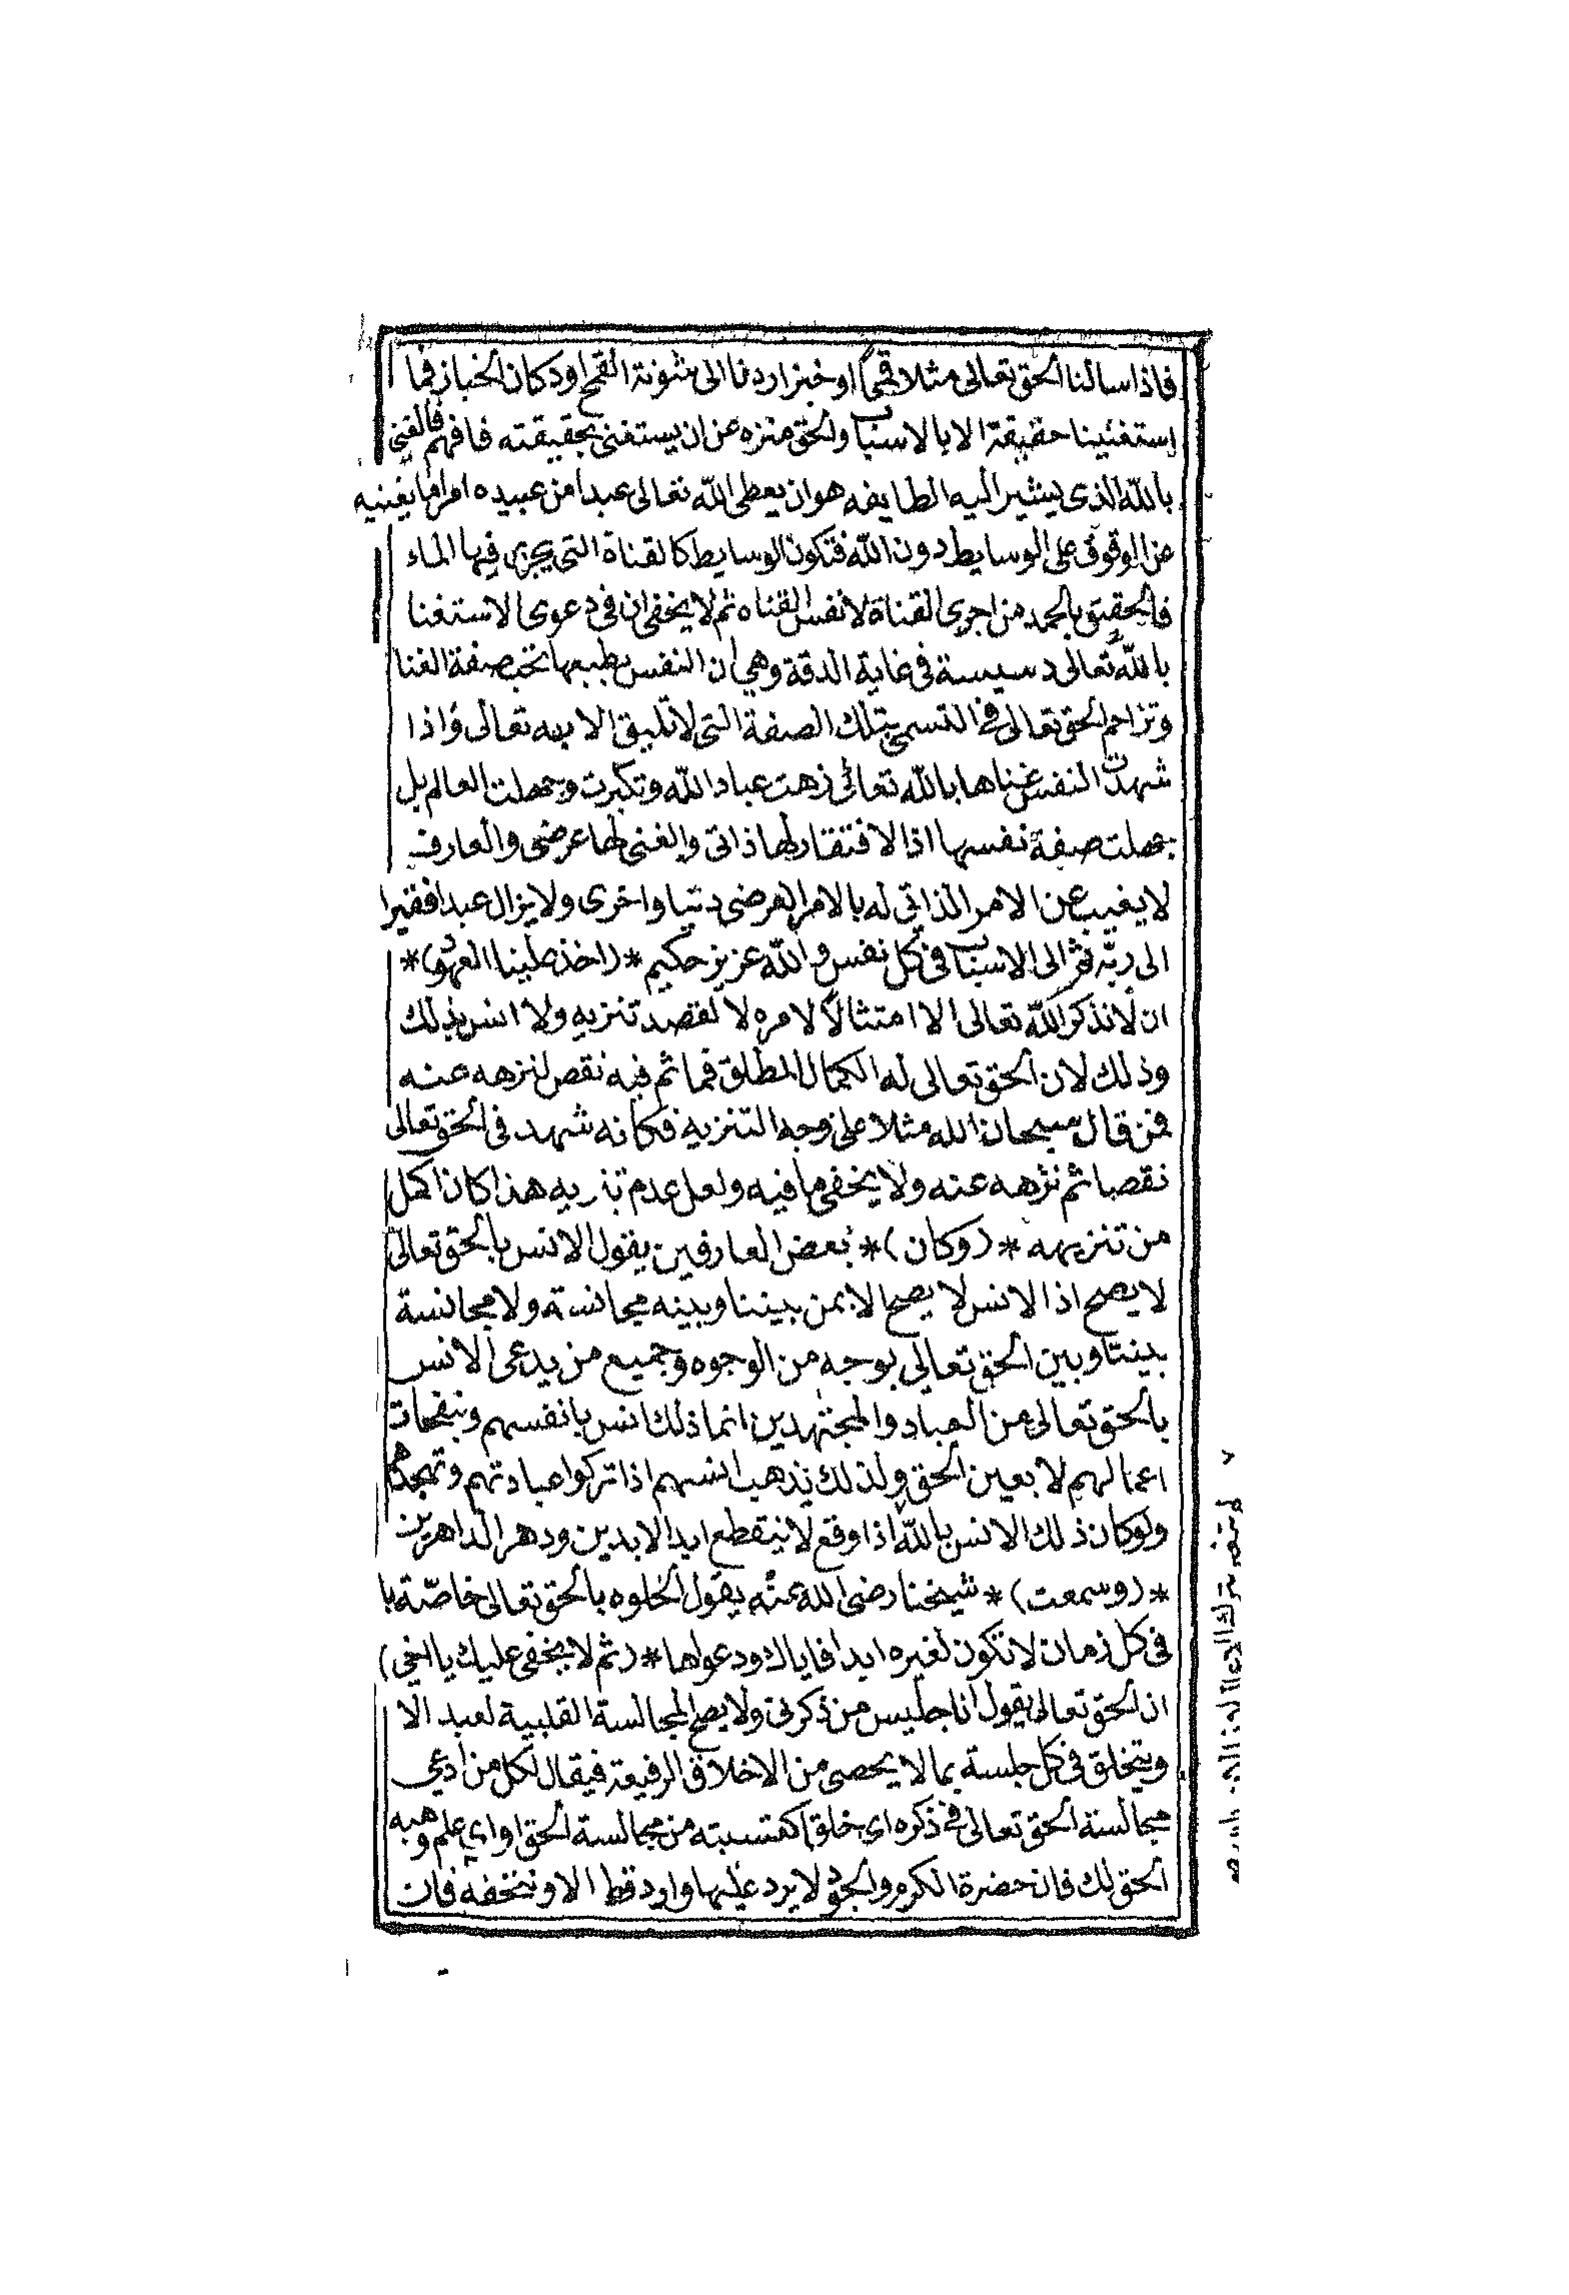 فاذا سالنا الحق تعالى مثلا قمحًا او خبزا ردنا الى شونة القمح او دكان الخباز فما
استغنينا حقيقة الا بالاسباب والحق منزه عن ان يستغنى بحقيقته فافهم فالغنى
بالله الذى يشير اليه الطايفه هو ان يعطى الله تعالى عبدا من عبيده امرا ما يغنيه
عن الوقوف على الوسايط دون الله فتكون الوسايط كالقناة التى يجرى فيها الماء
فالحقيق بالحمد من اجرى القناة لا نفس القناه ثم لا يخفى ان فى دعوى الاستغنا
بالله تعالى دسيسة فى غاية الدقة وهي ان النفس بطبعها تحب صفة الغنا
وتزاحم الحق تعالى فى التسمى بتلك الصفة التى لا تليق الا به تعالى واذا
شهدت النفس غناها بالله تعالى زهت عباد الله وتكبرت وجهلت العالم بل
جهلت صفة نفسها اذ الافتقار لها ذاتى والغنى لها عرضى والعارف
لا يغيب عن الامر الذاتي له بالامر العرضى دنيا واخرى ولا يزال عبدا فقيرا
الى ربّه ثم الى الاسباب فى كل نفس والله عزيز حكيم * (اخذ علينا العهود) *
ان لا نذكر الله تعالى الا امتثالًا لامره لا لقصد تنزيه ولا انس بذلك
وذلك لان الحق تعالى له الكمال المطلق فما ثم فيه نقص لننزهه عنه
فمن قال سبحان الله مثلا على وجه التنزيه فكانه شهد فى الحق تعالى
نقصا ثم نزهه عنه ولا يخفى ما فيه ولعل عدم تنزيه هذا كان اكمل
من تنزيهه * (وكان) * بعض العارفين يقول الانس بالحق تعالى
لا يصح اذ الانس لا يصح الا بمن بيننا وبينه مجانسة ولا مجانسة
بيننا وبين الحق تعالى بوجه من الوجوه وجميع من يدعى الانس
بالحق تعالى من العباد والمجتهدين انما ذلك انس بانفسهم وبنفحات
اعمالهم لا بعين الحق ولذلك يذهب انسهم اذا تركوا عبادتهم وتهجدهم
ولو كان ذلك الانس بالله اذا وقع لا ينقطع ابد الابدين ودهر الداهرين
* (وسمعت) * شيخنا رضى الله عنه يقول الخلوه بالحق تعالى خاصّة با
فى كل زمان لا تكون لغيره ابدا فاياك ودعواها * (ثم لا يخفى عليك يا اخى)
ان الحق تعالى يقول انا جليس من ذكرنى ولا يصح المجالسة القلبية لعبد الا
ويتخلق فى كل جلسة بما لا يحصى من الاخلاق الرفيعة فيقال لكل من ادعى
مجالسة الحق تعالى فى ذكره اي خلق اكتسبته من مجالسة الحق او اي علم وهبه
الحق لك فان حضرة الكرم والجود لا يرد عليها وارد قط الا وتتحفه فان